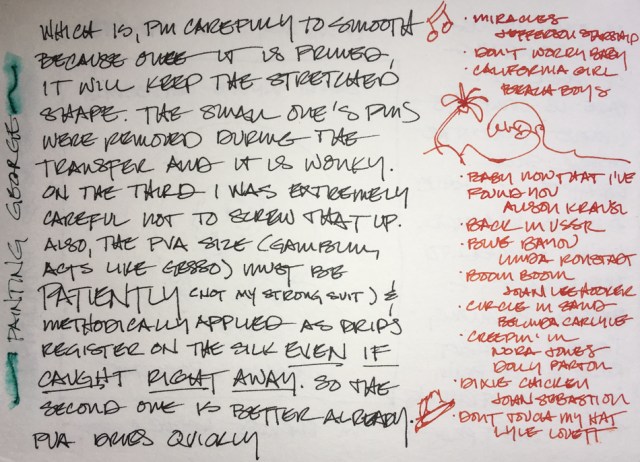 PAINTING GEORGE
WHICH IS, PIN CAREFULLY TO SMOOTH
BECAUSE ONCE IT IS PRIMED,
IT WILL KEEP THE STRETCHED
SHAPE. THE SMALL ONE'S PINS
WERE REMOVED DURING THE
TRANSFER AND IT IS WONKY.
ON THE THIRD I WAS EXTREMELY
CAREFUL NOT TO SCREW THAT UP.
ALSO, THE PVA SIZE (GAMBLIN,
ACTS LIKE GESSO) MUST BE
PATIENTLY (NOT MY STRONG SUIT) &
METHODICALLY APPLIED AS DRIPS
REGISTER ON THE SILK EVEN IF
CAUGHT RIGHT AWAY. SO THE
SECOND ONE IS BETTER ALREADY.
PVA DRIES QUICKLY
· MIRACLES
JEFFERSON STARSHIP
· DON'T WORRY BABY
· CALIFORNIA GIRL
BEACH BOYS
· BABY NOW THAT I'VE
FOUND YOU
ALISON KRAUSS
· BACK IN USSR
· BLUE BAYOU
LINDA RONSTADT
· BOOM BOOM
JOHN LEE HOOKER
· CIRCLE IN SAND
BELINDA CARLYLE
· CREEPIN' IN
NORA JONES
DOLLY PARTON
· DIXIE CHICKEN
JOHN SEBASTION
· DON'T TOUCH MY HAT
LYLE LOVETT